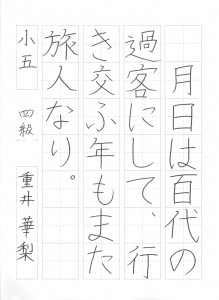 月日は百代の
過客にして、行
き交ふ年もまた
旅人なり。
小五 四級 重井華梨